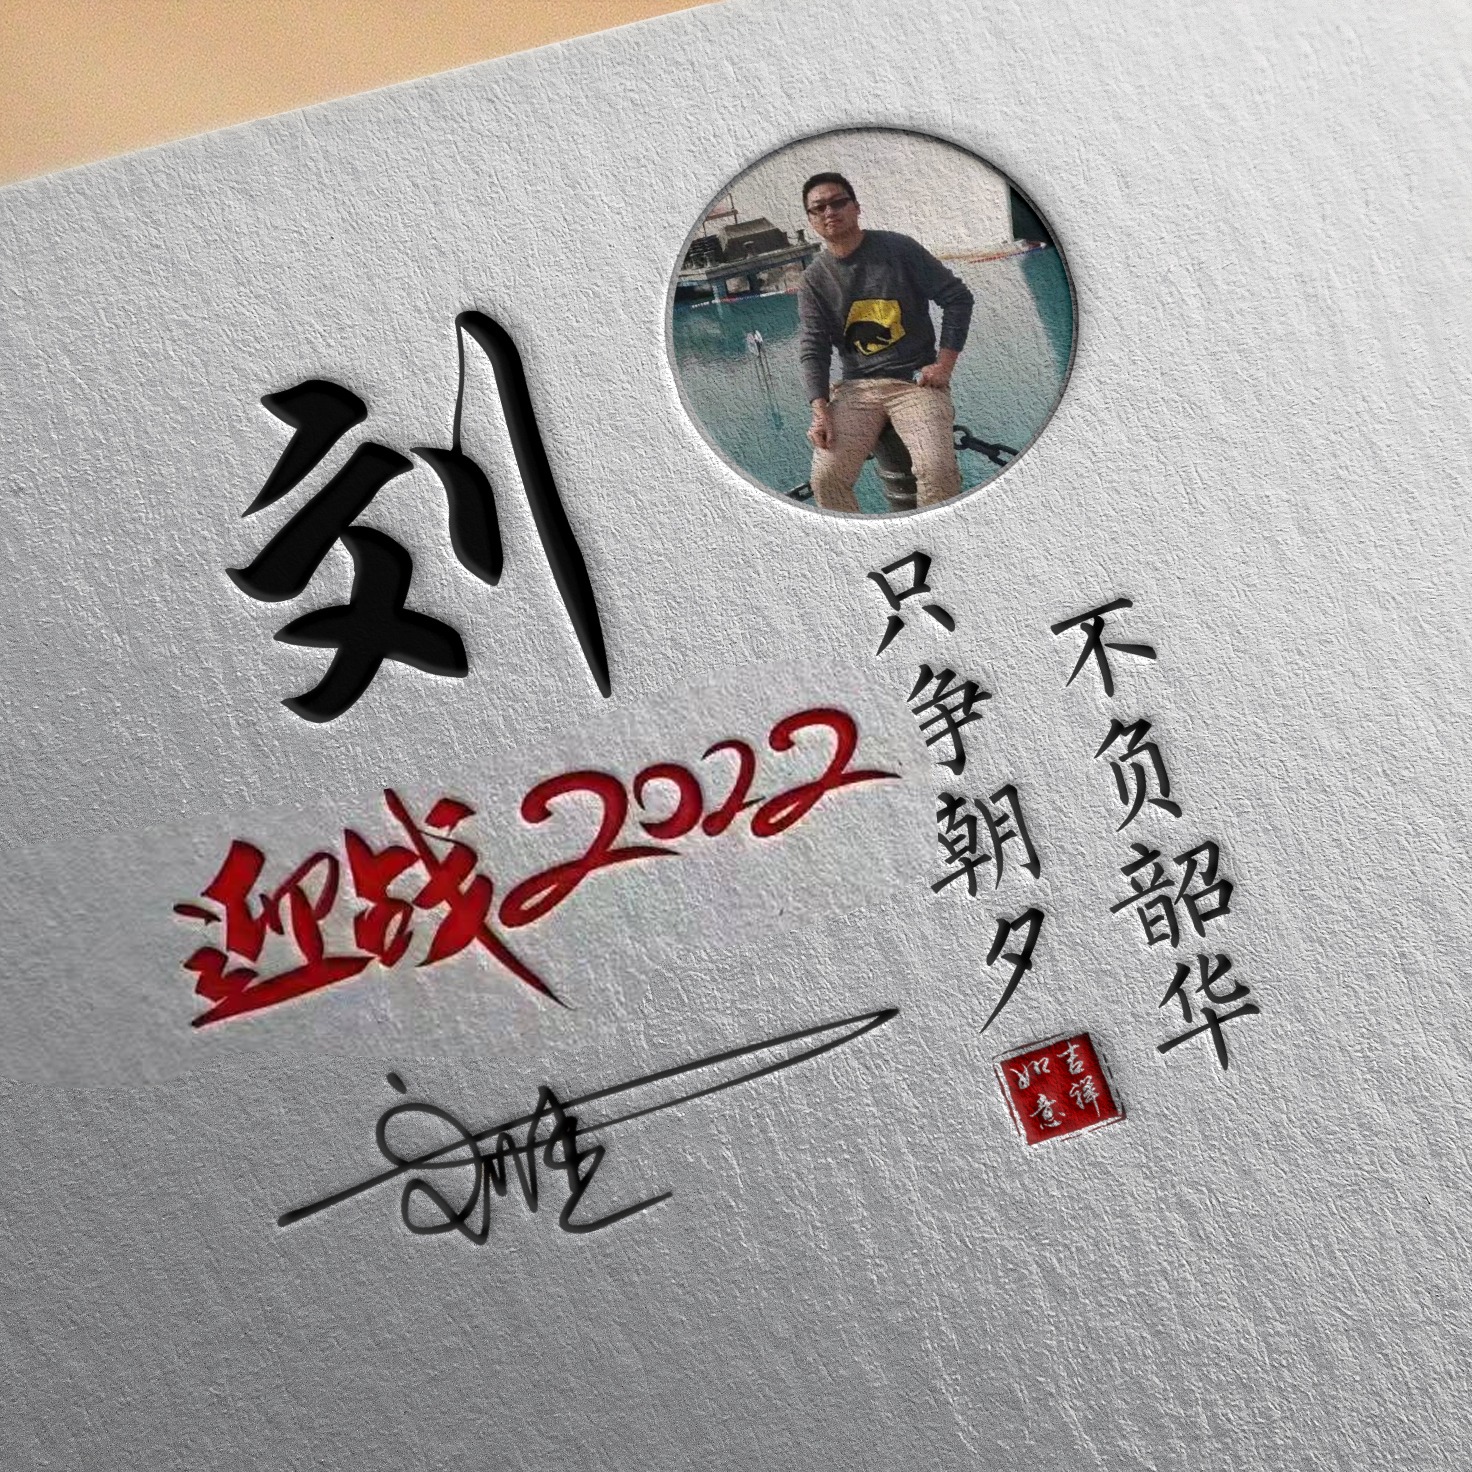 刘
迎战2022
只争朝夕
不负韶华
吉祥
如意